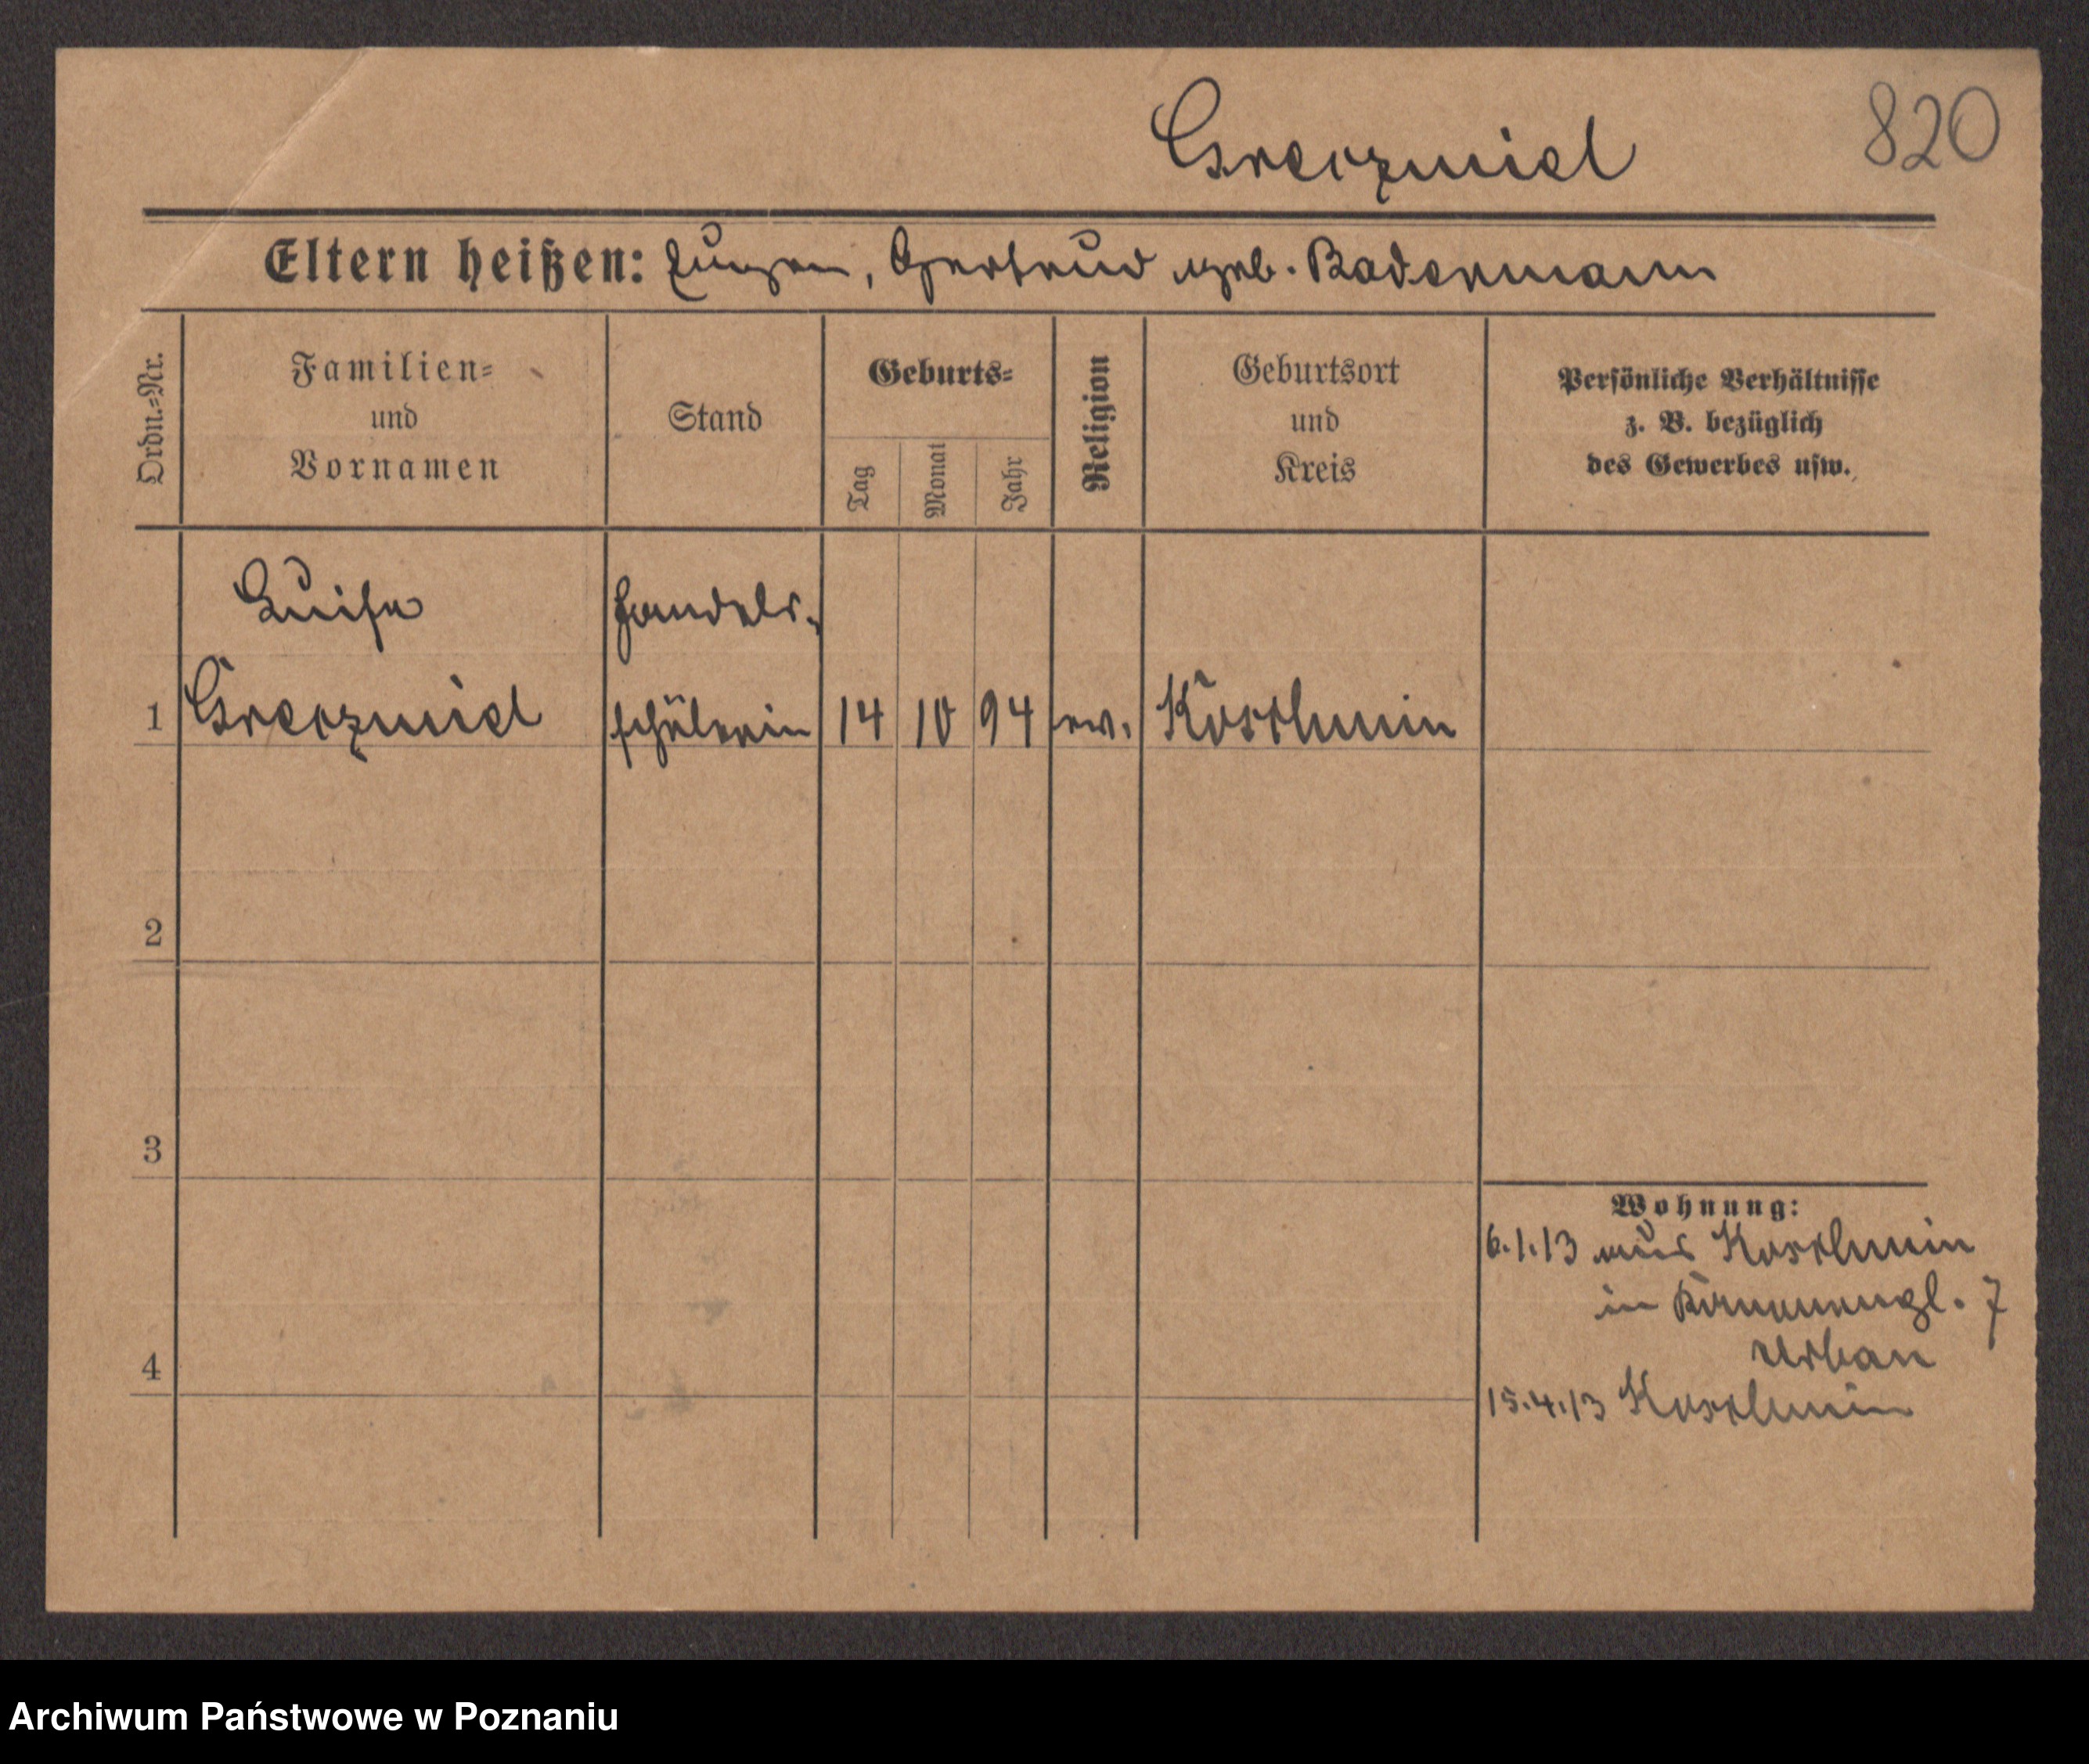 Greczmiel 820
Eltern heißen: Eugen, Gertrud geb. Badermann
Ordn.=Nr.
Familien=
und
Vornamen
Stand
Geburts=
Tag
Monat
Jahr
Religion
Geburtsort
und
Kreis
Persönliche Verhältnisse
z. B. bezüglich
des Gewerbes usw.
Luise Handels-
1 Greczmiel schülerin 14 10 94 ev. Koschmin
2
3
4
Wohnung:
6.1.13 aus Koschmin
in 7
Urban
15.4.13 Koschmin
Archiwum Państwowe w Poznaniu